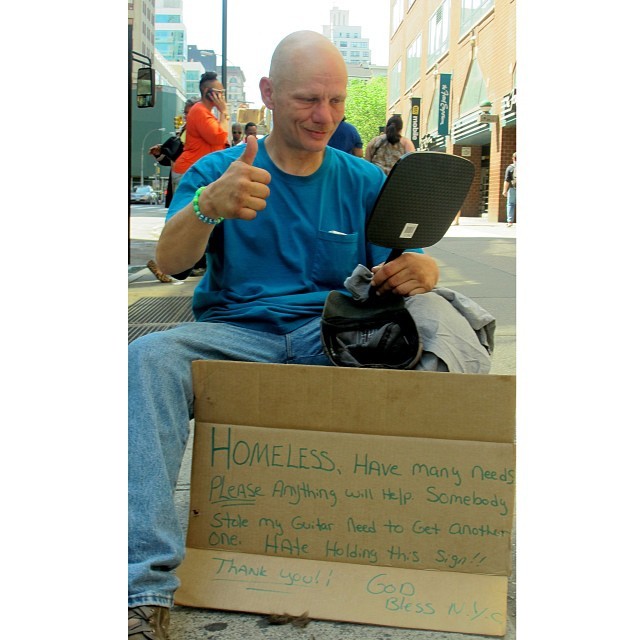 HOMELESS. HAve many Needs
PLEASE Anything will Help. Somebody
Stole my Guitar Need to Get another
ONE. HAte Holding this Sign!!
THANK you!! GOD
BLESS N.Y.C
mobile